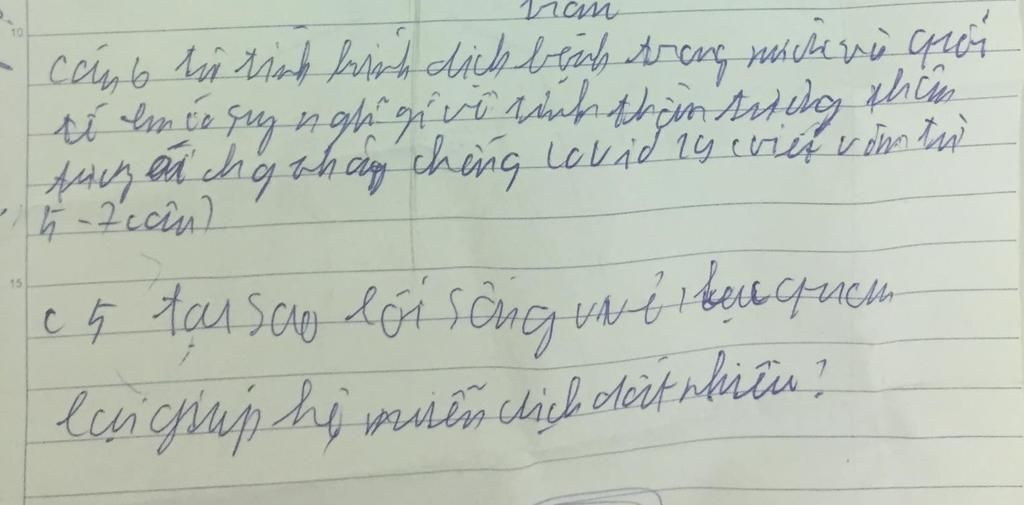 câu 6 từ tình hình dịch bệnh trong nước và quốc
tế em có suy nghĩ gì về tinh thần tương thân
tương ái phòng chống covid 19 (viết văn từ
5 - 7 câu)
c 5 tại sao lối sống vui vẻ lạc quan
lại giúp hệ miễn dịch rất nhiều?